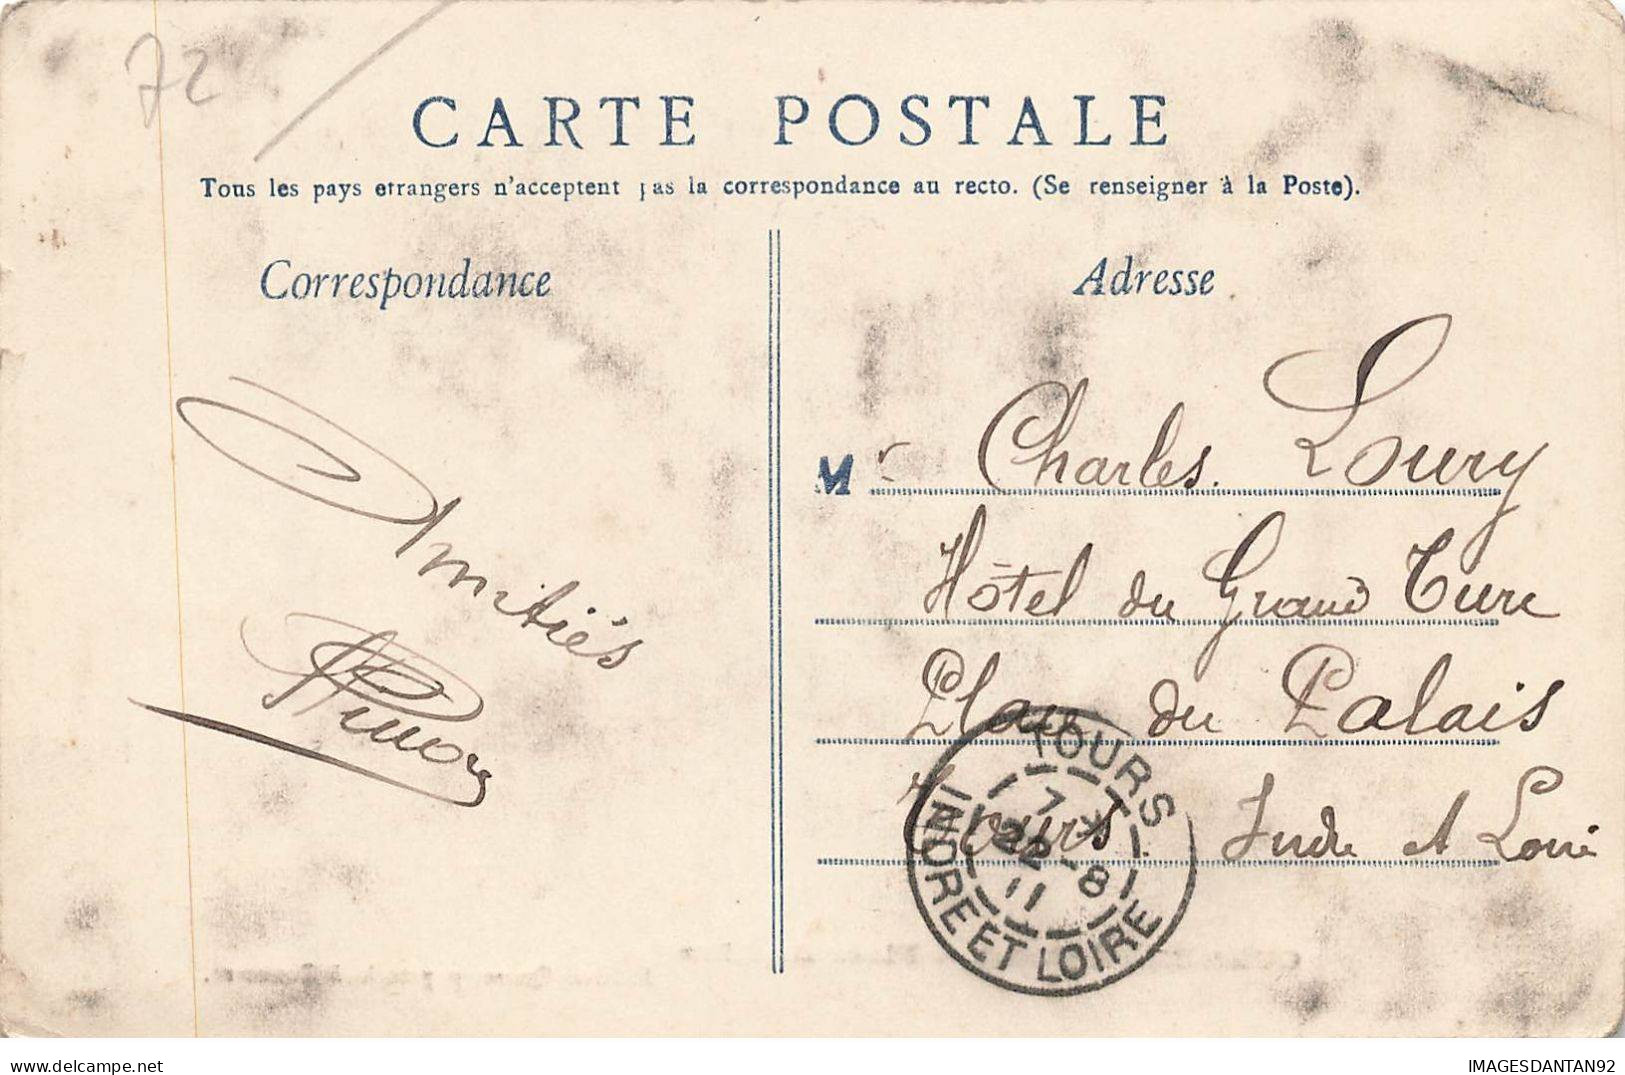 72
CARTE POSTALE
Tous les pays etrangers n'acceptent pas la correspondance au recto. (Se renseigner à la Poste).
Correspondance
Amitiés
Adresse
Mr Charles Loury
Hôtel du Grand Turc
Place du Palais
Tours. Indre et Loire
TOURS
7 *
22-8
11
INDRE ET LOIRE
https://www.delcampe.net
IMAGESDANTAN92